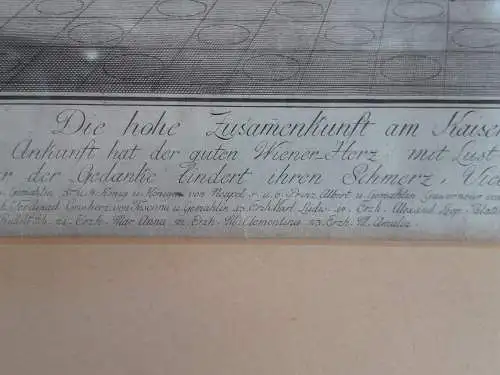 Die hohe Zusam̅enkunft am Kaise
Ankunft hat der guten Wiener-Herz mit Lust
er der Gedanke lindert ihren Schmerz, Vie
Gemahlin König u. Königin von Neapel 7. u. 8. Prinz Albert u. Gemahlin Gouverneur von
Ferdinand Grosherz. von Toscana u. Gemahlin Erzh. Karl Ludw. 19. Erzh. Alexand. Leop. Palat
Rudolph. 21. Erzh. Mar. Anna 22. Erzh. M. Clementina 23. Erzh. M. Amalia